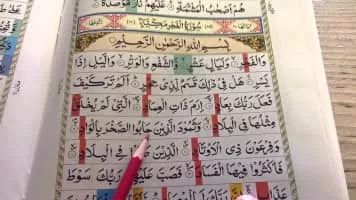 هُمْ أَصْحَٰبُ الْمَشْـَٔمَةِ ۝ عَلَيْهِمْ نَارٌ مُّؤْصَدَةٌ ۝
سُوْرَةُ الْفَجْرِ مَكِّيَّةٌ
بِسْمِ اللّٰهِ الرَّحْمٰنِ الرَّحِيْمِ
وَالْفَجْرِ ۝ وَلَيَالٍ عَشْرٍ ۝ وَّالشَّفْعِ وَالْوَتْرِ ۝ وَالَّيْلِ اِذَا
يَسْرِ ۝ هَلْ فِيْ ذٰلِكَ قَسَمٌ لِّذِيْ حِجْرٍ ۝ اَلَمْ تَرَ كَيْفَ
فَعَلَ رَبُّكَ بِعَادٍ ۝ اِرَمَ ذَاتِ الْعِمَادِ ۝ الَّتِيْ لَمْ يُخْلَقْ
مِثْلُهَا فِي الْبِلَادِ ۝ وَثَمُوْدَ الَّذِيْنَ جَابُوا الصَّخْرَ بِالْوَادِ ۝
وَفِرْعَوْنَ ذِي الْاَوْتَادِ ۝ الَّذِيْنَ طَغَوْا فِي الْبِلَادِ ۝
فَاَكْثَرُوْا فِيْهَا الْفَسَادَ ۝ فَصَبَّ عَلَيْهِمْ رَبُّكَ سَوْطَ